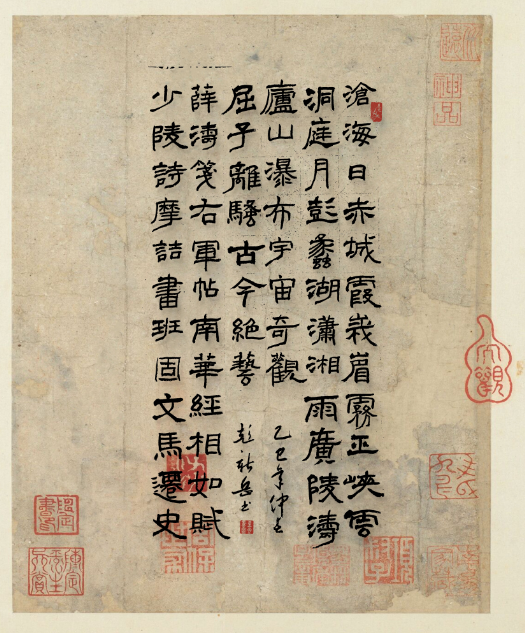 滄海日赤城霞峩眉霧巫峽雲
洞庭月彭蠡湖瀟湘雨廣陵濤
廬山瀑布宇宙奇觀
乙巳年仲
屈子離騷古今絕藝
彭岳书
薛濤箋右軍帖南華經相如賦
少陵詩摩詰畫班固文馬遷史
神品
大觀